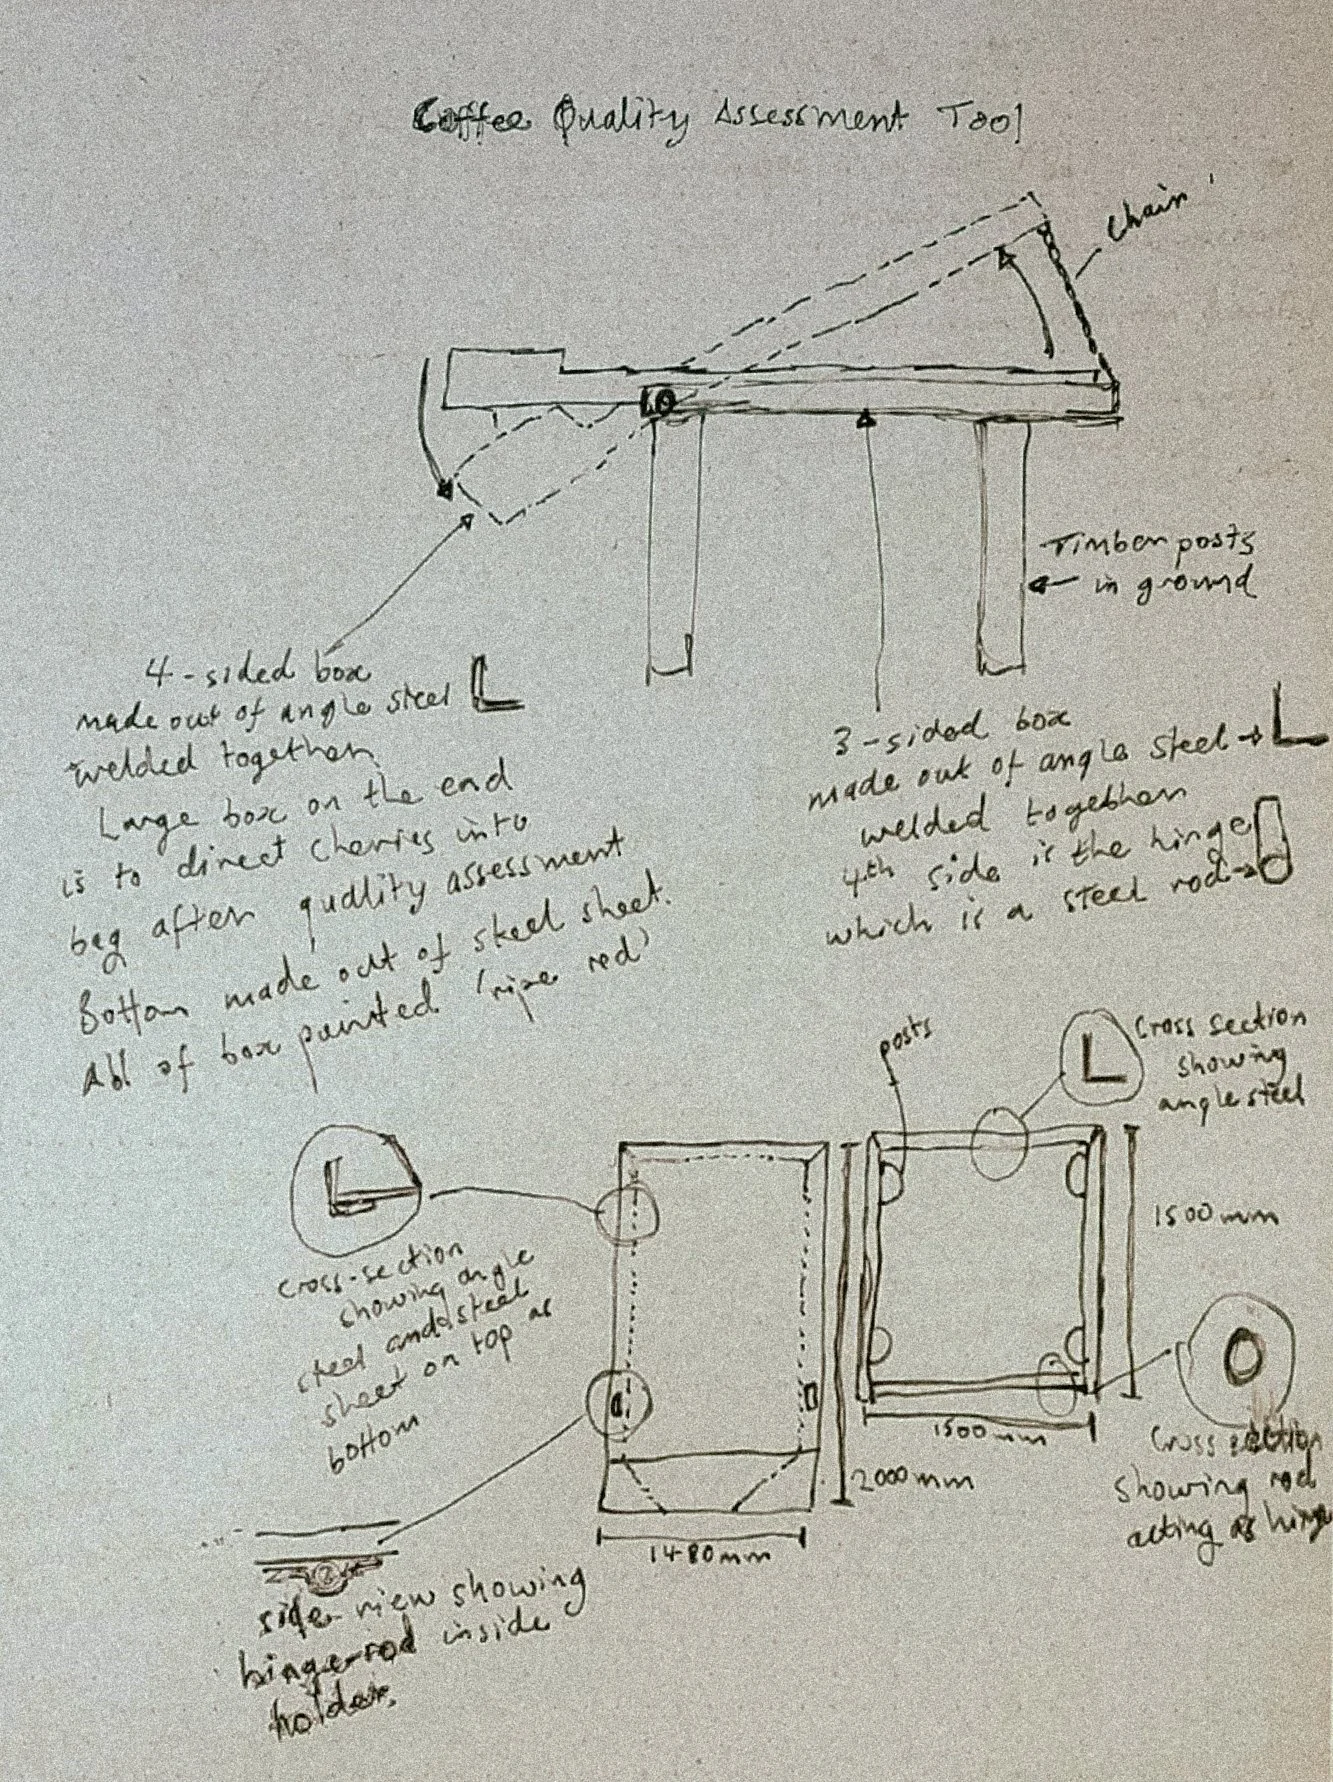 Coffee Quality Assessment Tool
Chain
Timber posts
in ground
4-sided box
made out of angle steel
welded together
Large box on the end
is to direct cherries into
bag after quality assessment
Bottom made out of steel sheet.
All of box painted 'ripe red'
3-sided box
made out of angle steel
welded together
4th side is the hinge
which is a steel rod
posts
Cross section
showing
angle steel
Cross-section
showing angle
steel and steel
sheet on top as
bottom
1500mm
1500mm
2000mm
1480mm
Cross section
showing rod
acting as hinge
side view showing
hinge-rod inside
holder.